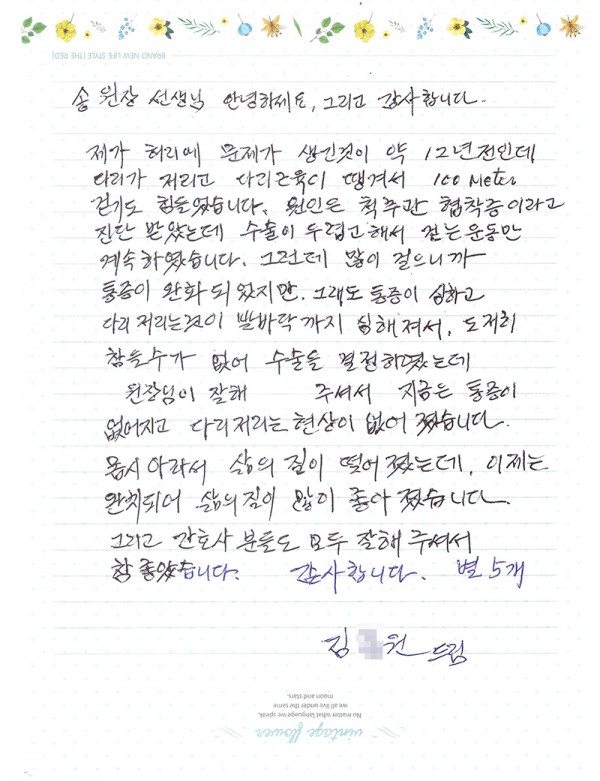 BRAND NEW LIFE STYLE [THE RED]
송 원장 선생님 안녕하세요, 그리고 감사합니다.
제가 허리에 문제가 생긴것이 약 12년전인데
다리가 저리고 다리근육이 땡겨서 100 Meter
걷기도 힘들었습니다. 원인은 척추관 협착증이라고
진단 받았는데 수술이 두렵고해서 걷는운동만
계속하였습니다. 그런데 많이 걸으니까
통증이 완화되었지만. 그래도 통증이 심하고
다리저리는것이 발바닥까지 심해져서, 도저히
참을수가 없어 수술을 결정하였는데
원장님이 잘해 주셔서 지금은 통증이
없어지고 다리저리는현상이 없어졌습니다.
몹시아파서 삶의 질이 떨어졌는데, 이제는
완치되어 삶의질이 많이 좋아졌습니다.
그리고 간호사 분들도 모두 잘해 주셔서
참 좋았습니다. 감사합니다. 별 5개
김 원 드림
moon and stars.
we all live under the same
No matter what language we speak,
vintage flower